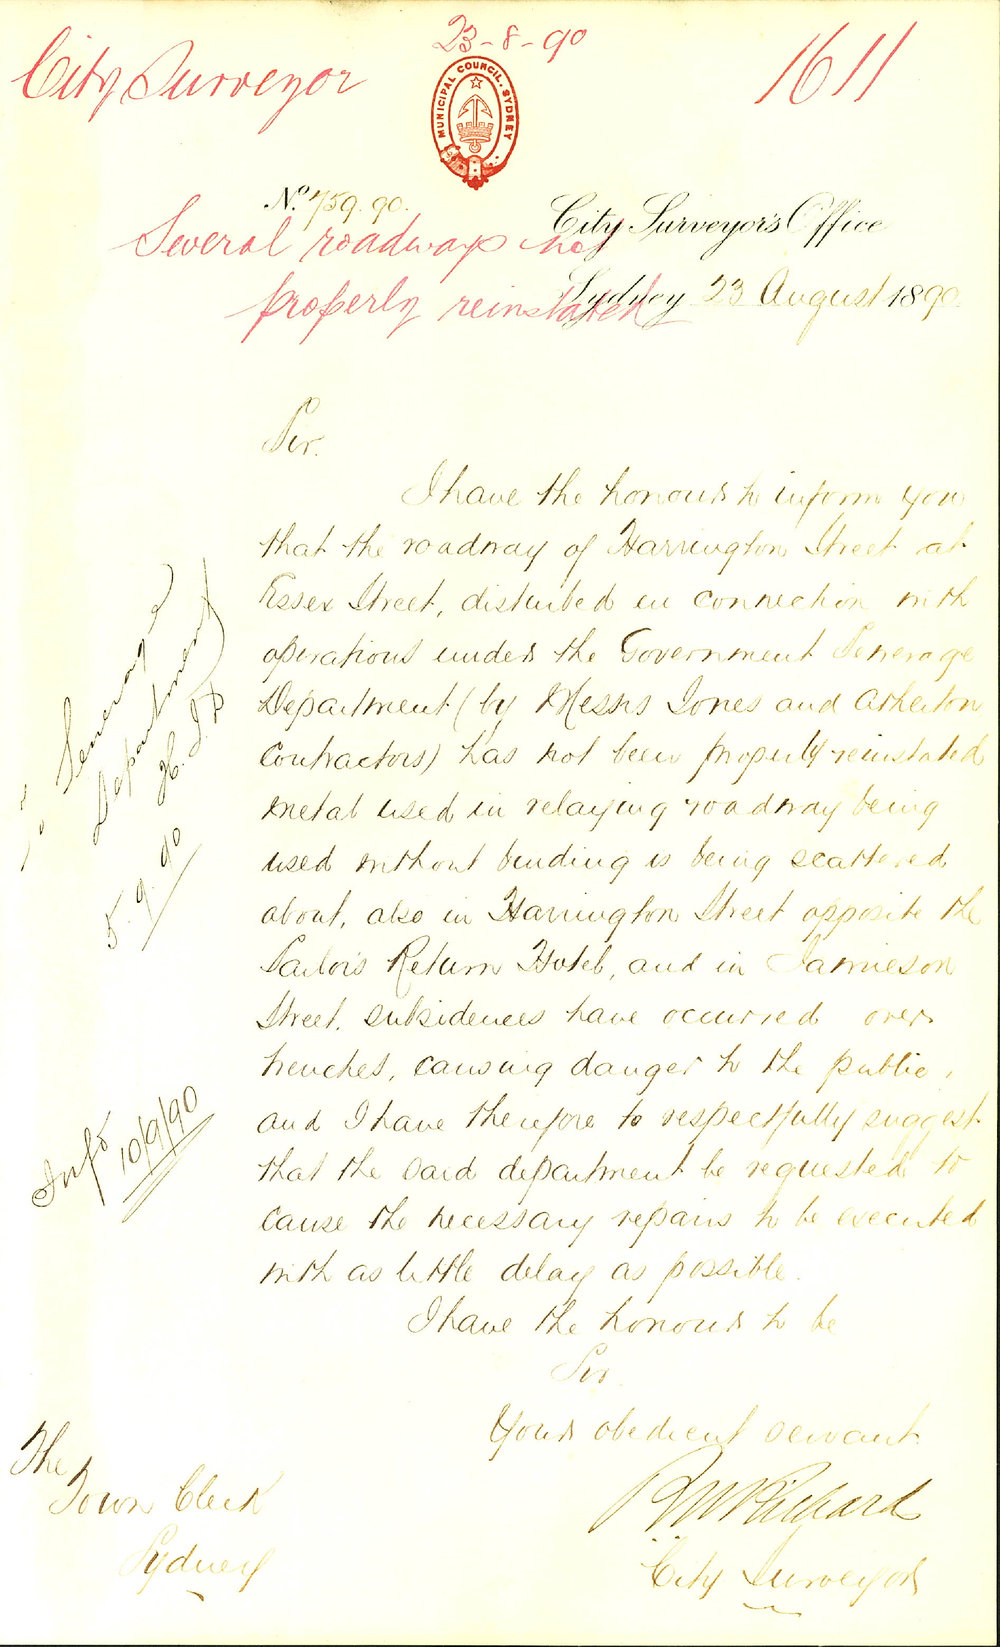 23-8-90
City Surveyor
1611
MUNICIPAL COUNCIL. SYDNEY
No. 759.90.
City Surveyor's Office
Several roadways not
properly reinstated
Sydney 23 August 1890
Sir.
I have the honour to inform you
that the roadway of Harrington Street at
Essex Street, disturbed in connection with
operations under the Government Sewerage
Department (by Messrs Jones and Atherton
Contractors) has not been properly reinstated
metal used in relaying roadway being
used without binding is being scattered
about, also in Harrington Street opposite the
Sailors Return Hotel, and in Jamieson
Street. subsidences have occurred over
trenches, causing danger to the public,
and I have therefore to respectfully suggest
that the said department be requested to
cause the necessary repairs to be executed
with as little delay as possible.
I have the honour to be
Sir.
Your obedient servant.
City Surveyor
The
Town Clerk
Sydney
Sewerage
Department
5.9.90
10/9/90